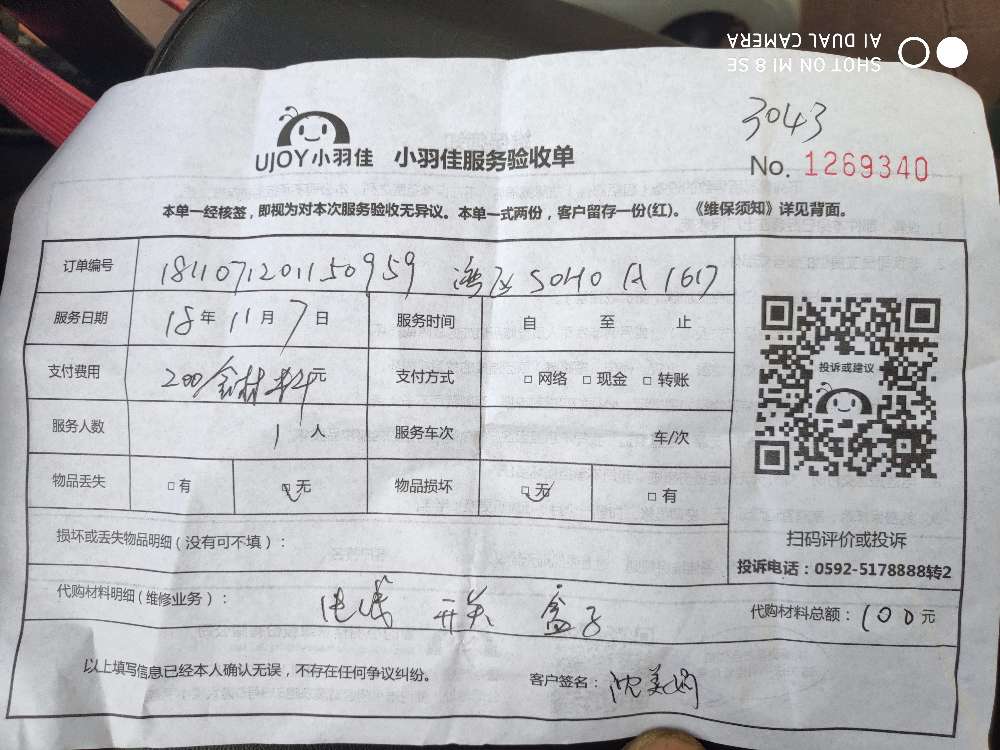 SHOT ON MI 8 SE
AI DUAL CAMERA
3043
UJOY小羽佳 小羽佳服务验收单
No. 1269340
本单一经核签，即视为对本次服务验收无异议。本单一式两份，客户留存一份(红)。《维保须知》详见背面。
订单编号 1811071201150959 湾区SOHO A 1617
服务日期 18年11月7日 服务时间 自 至 止
支付费用 200含材料元 支付方式 □网络 □现金 □转账
服务人数 1人 服务车次 车/次
物品丢失 □有 □无 物品损坏 □无 □有
投诉或建议
扫码评价或投诉
投诉电话：0592-5178888转2
损坏或丢失物品明细（没有可不填）：
代购材料明细（维修业务）： 电线 开关 盒子 代购材料总额：100元
以上填写信息已经本人确认无误，不存在任何争议纠纷。 客户签名：沈美